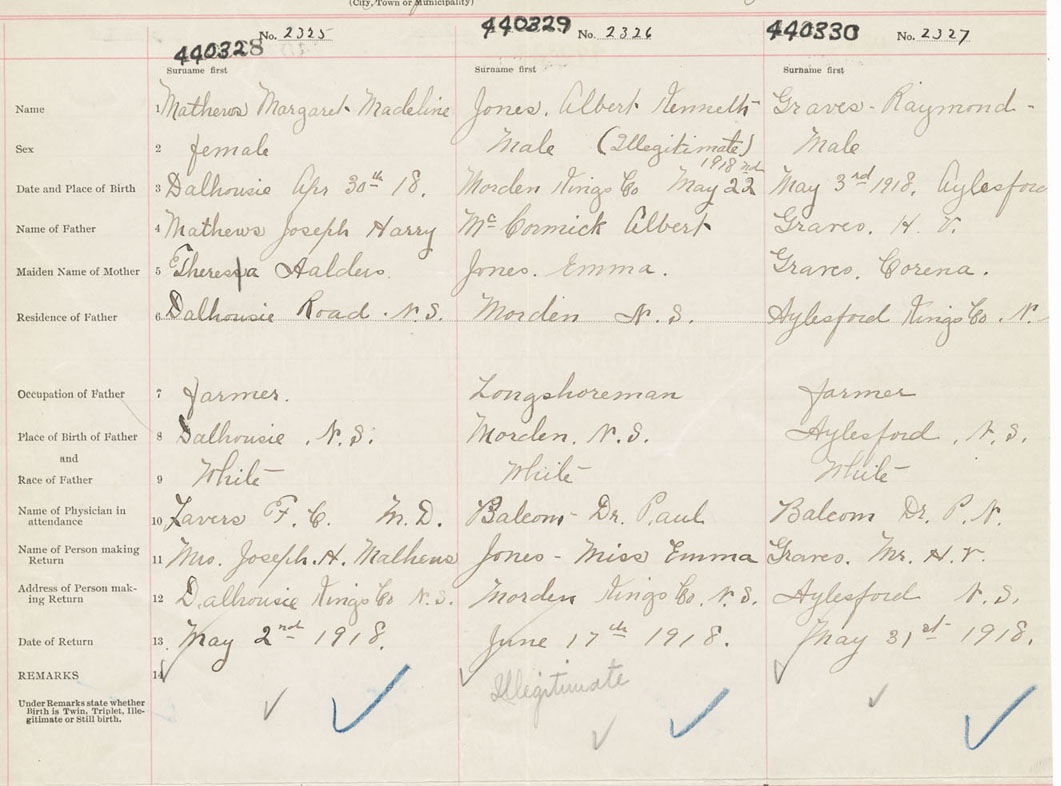 (City, Town or Municipality)
440328 No. 2325 440329 No. 2326 440330 No. 2327
Surname first Surname first Surname first
Name 1 Mathews Margaret Madeline Jones, Albert Kenneth Graves - Raymond -
Sex 2 female Male (Illegitimate) Male
Date and Place of Birth 3 Dalhousie Apr 30th 18. Morden Kings Co May 22nd 1918 May 3rd 1918, Aylesford
Name of Father 4 Mathews Joseph Harry McCormick Albert Graves, H. V.
Maiden Name of Mother 5 Theresa Aalders. Jones. Emma. Graves, Corena.
Residence of Father 6 Dalhousie Road. N.S. Morden N.S. Aylesford Kings Co. N.
Occupation of Father 7 farmer. Longshoreman farmer
Place of Birth of Father 8 Dalhousie, N.S. Morden, N.S. Aylesford, N.S.
and
Race of Father 9 White White White
Name of Physician in attendance 10 F. C. M.D. Balcom - Dr. Paul Balcom Dr. P. N.
Name of Person making Return 11 Mrs. Joseph. H. Mathews Jones - Miss Emma Graves, Mr. H. V.
Address of Person making Return 12 Dalhousie Kings Co N.S. Morden Kings Co. N.S. Aylesford N.S.
Date of Return 13. May 2nd 1918. June 17th 1918. May 31st 1918.
REMARKS 14 Illegitimate
Under Remarks state whether
Birth is Twin, Triplet, Ille-
gitimate or Still birth.